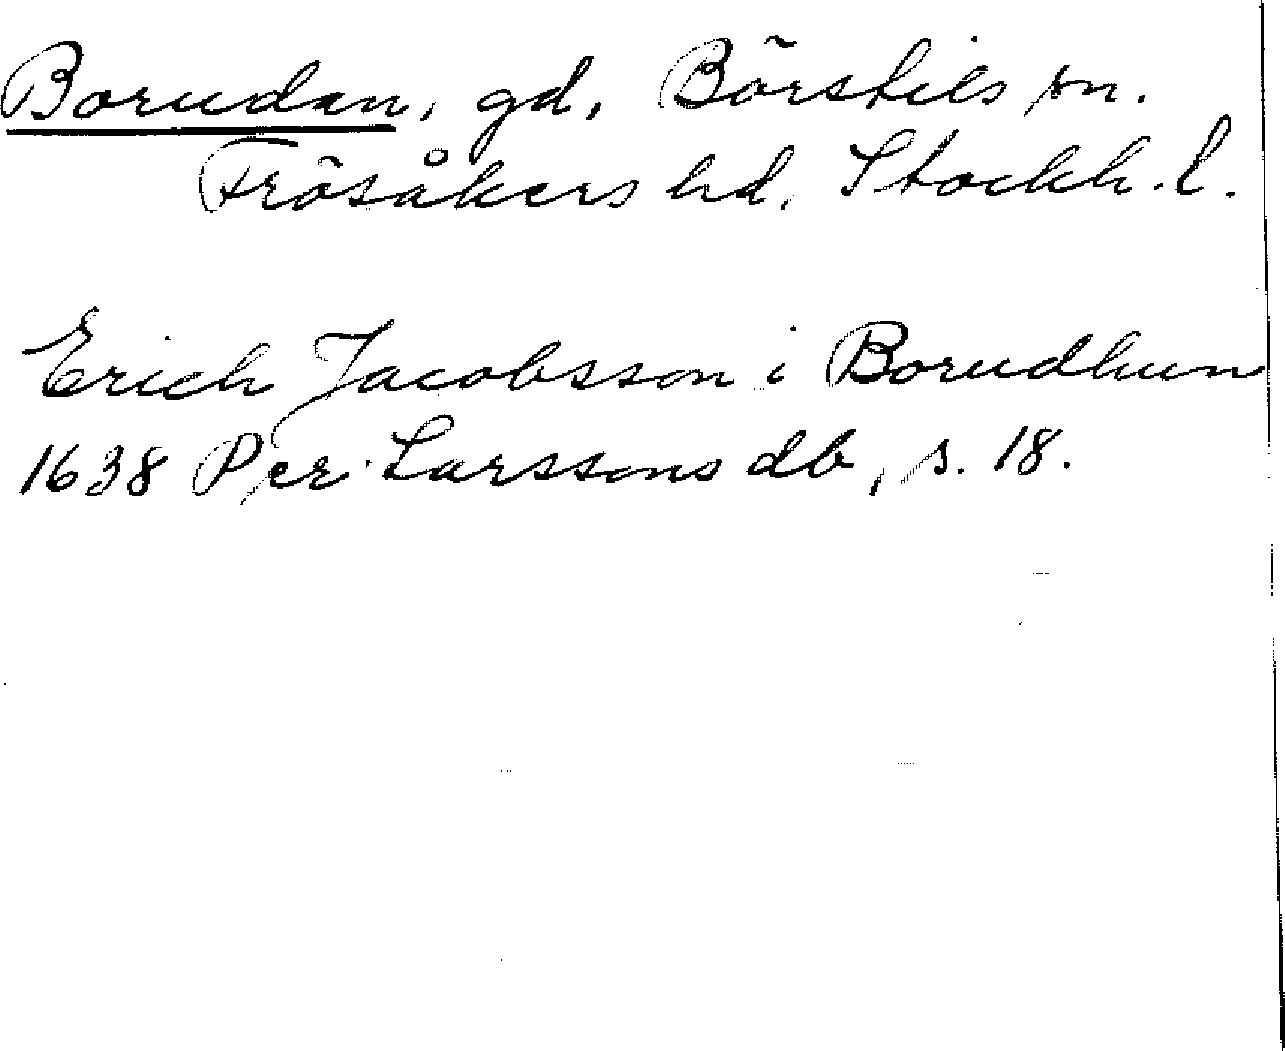 Borudan, gd, Börstils sn.
Frösåkers hd, Stockh. l.
Erich Jacobsson i Borudhun
1638 Per Larssons db, s. 18.